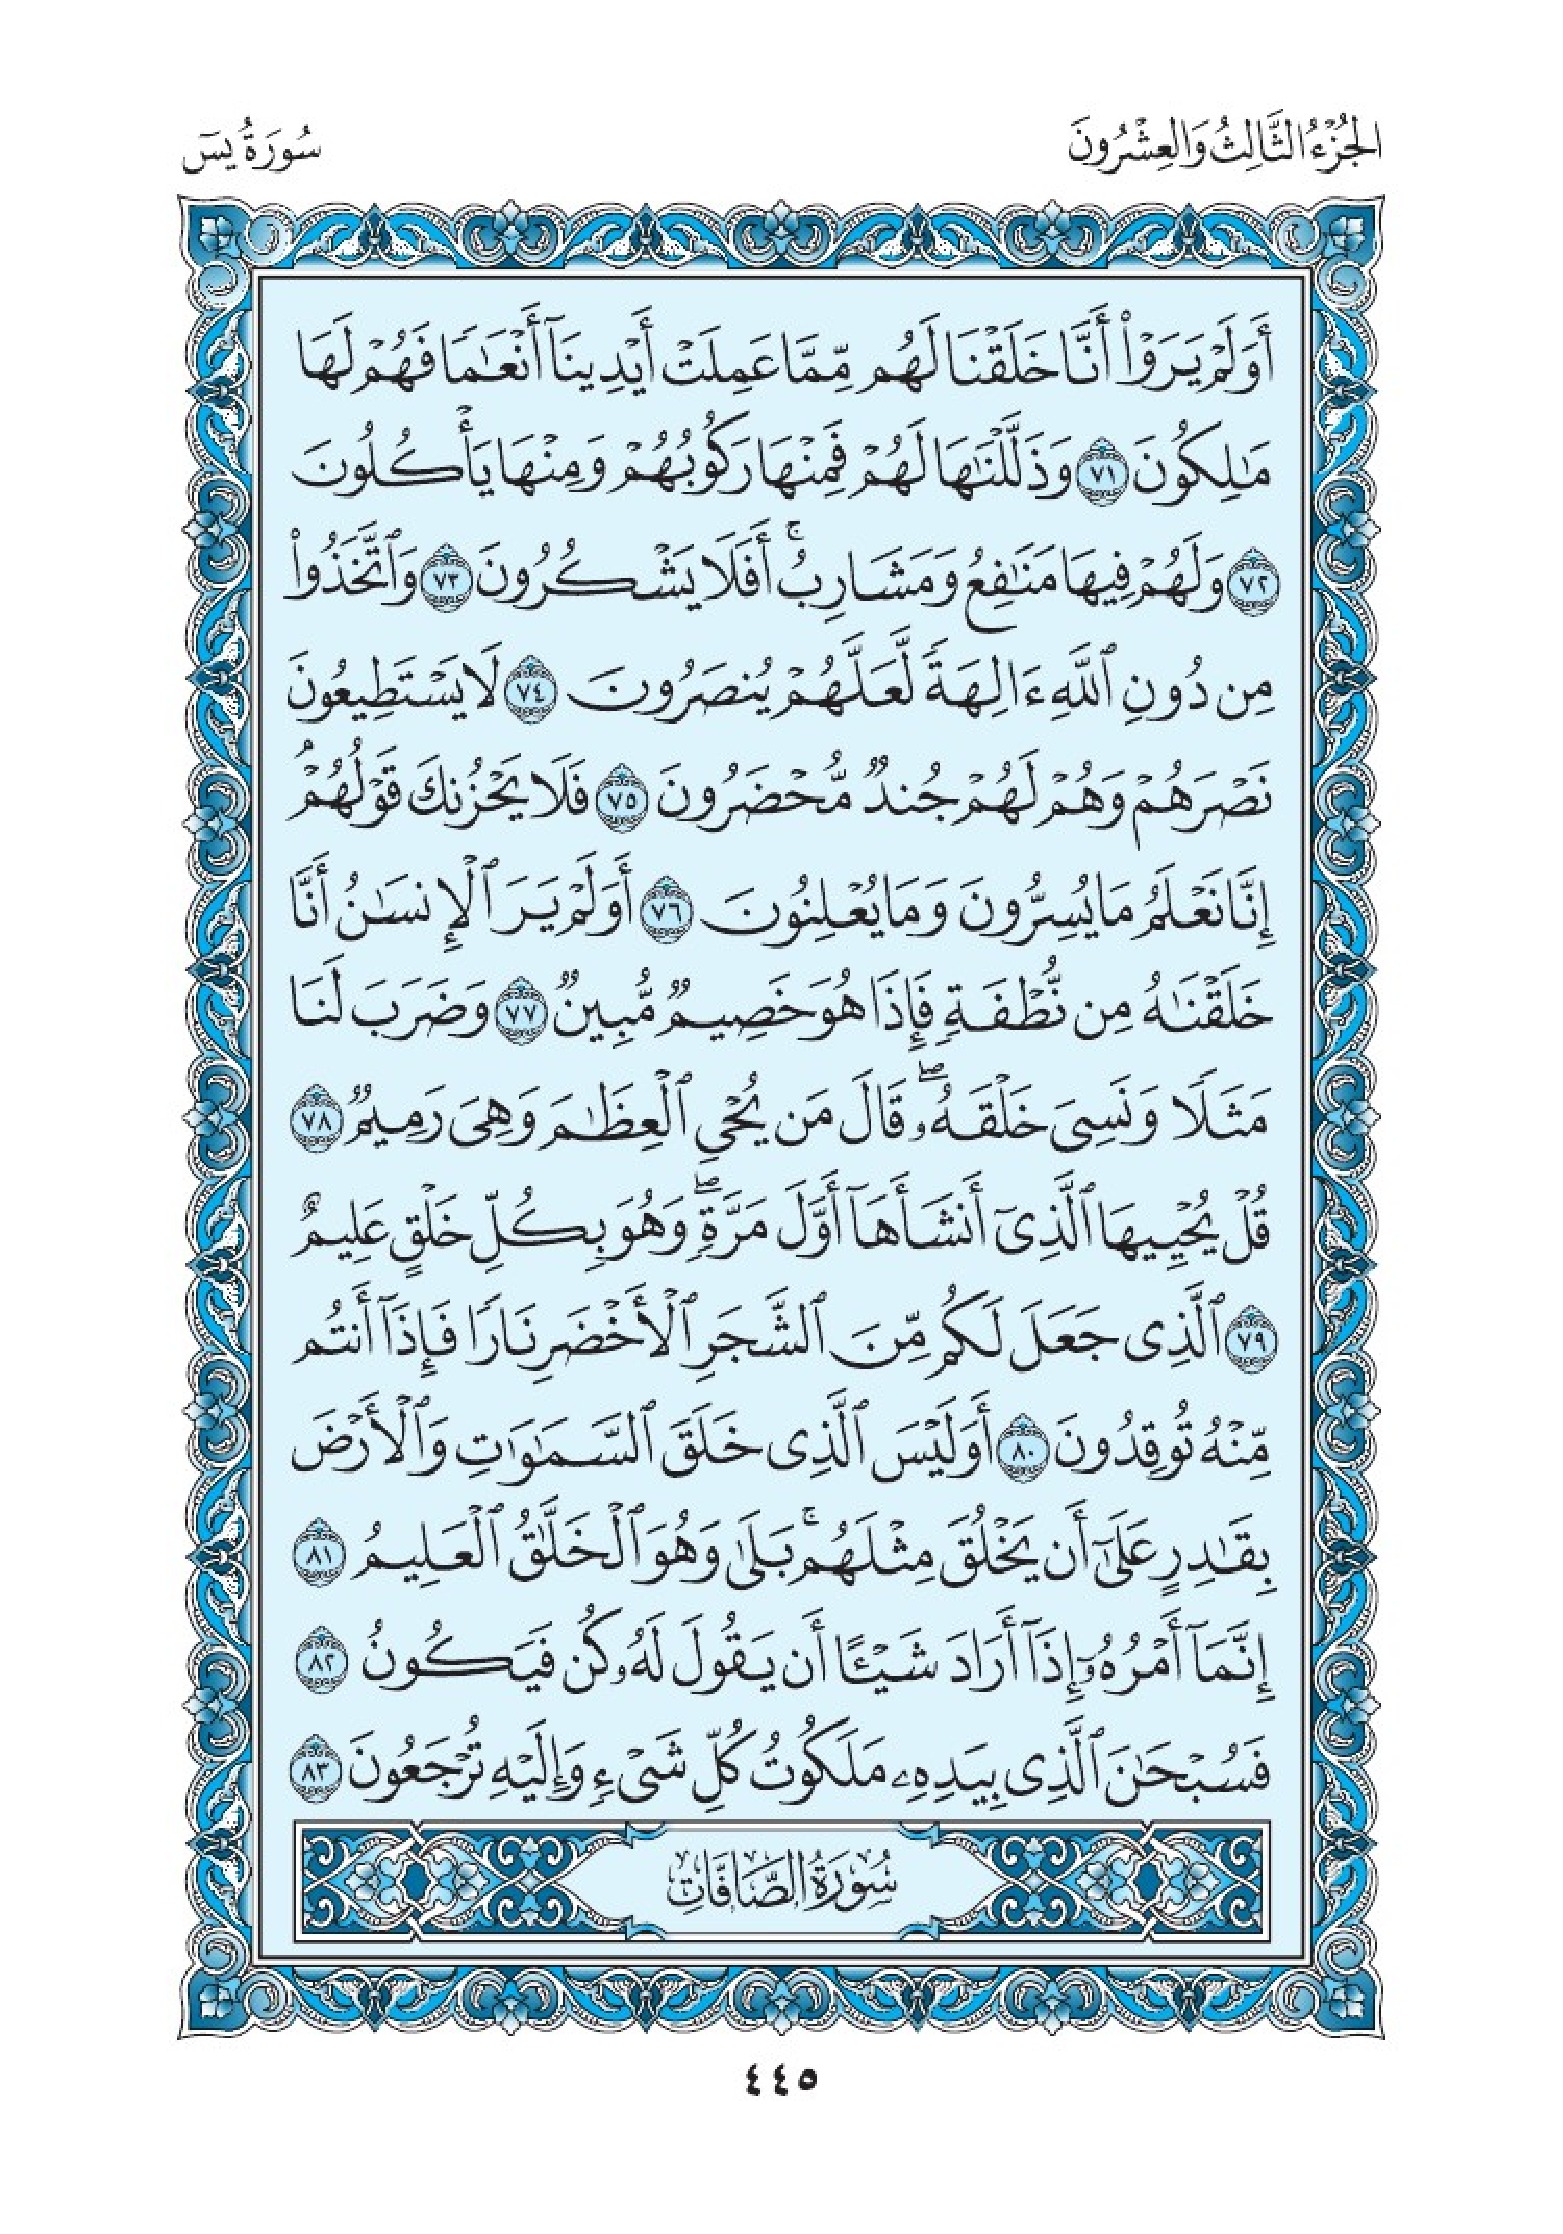 الجُزْءُ الثَّالِثُ وَالعِشْرُونَ
سُورَةُ يسٓ
أَوَلَمْ يَرَوْا۟ أَنَّا خَلَقْنَا لَهُم مِّمَّا عَمِلَتْ أَيْدِينَآ أَنْعَـٰمًا فَهُمْ لَهَا
مَـٰلِكُونَ ٧١ وَذَلَّلْنَـٰهَا لَهُمْ فَمِنْهَا رَكُوبُهُمْ وَمِنْهَا يَأْكُلُونَ
٧٢ وَلَهُمْ فِيهَا مَنَـٰفِعُ وَمَشَارِبُ ۚ أَفَلَا يَشْكُرُونَ ٧٣ وَٱتَّخَذُوا۟
مِن دُونِ ٱللَّهِ ءَالِهَةً لَّعَلَّهُمْ يُنصَرُونَ ٧٤ لَا يَسْتَطِيعُونَ
نَصْرَهُمْ وَهُمْ لَهُمْ جُندٌ مُّحْضَرُونَ ٧٥ فَلَا يَحْزُنكَ قَوْلُهُمْ ۘ
إِنَّا نَعْلَمُ مَا يُسِرُّونَ وَمَا يُعْلِنُونَ ٧٦ أَوَلَمْ يَرَ ٱلْإِنسَـٰنُ أَنَّا
خَلَقْنَـٰهُ مِن نُّطْفَةٍ فَإِذَا هُوَ خَصِيمٌ مُّبِينٌ ٧٧ وَضَرَبَ لَنَا
مَثَلًا وَنَسِىَ خَلْقَهُۥ ۖ قَالَ مَن يُحْىِ ٱلْعِظَـٰمَ وَهِىَ رَمِيمٌ ٧٨
قُلْ يُحْيِيهَا ٱلَّذِىٓ أَنشَأَهَآ أَوَّلَ مَرَّةٍ ۖ وَهُوَ بِكُلِّ خَلْقٍ عَلِيمٌ
٧٩ ٱلَّذِى جَعَلَ لَكُم مِّنَ ٱلشَّجَرِ ٱلْأَخْضَرِ نَارًا فَإِذَآ أَنتُم
مِّنْهُ تُوقِدُونَ ٨٠ أَوَلَيْسَ ٱلَّذِى خَلَقَ ٱلسَّمَـٰوَٰتِ وَٱلْأَرْضَ
بِقَـٰدِرٍ عَلَىٰٓ أَن يَخْلُقَ مِثْلَهُم ۚ بَلَىٰ وَهُوَ ٱلْخَلَّـٰقُ ٱلْعَلِيمُ ٨١
إِنَّمَآ أَمْرُهُۥٓ إِذَآ أَرَادَ شَيْـًٔا أَن يَقُولَ لَهُۥ كُن فَيَكُونُ ٨٢
فَسُبْحَـٰنَ ٱلَّذِى بِيَدِهِۦ مَلَكُوتُ كُلِّ شَىْءٍ وَإِلَيْهِ تُرْجَعُونَ ٨٣
سُورَةُ الصَّافَّاتِ
٤٤٥